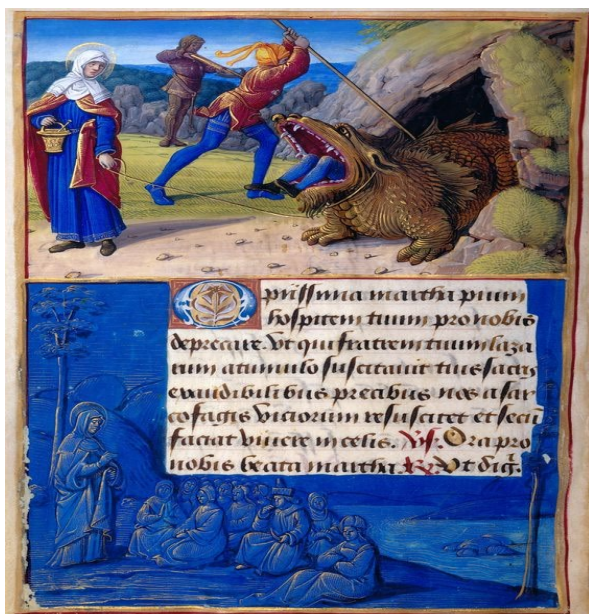 O piissima martha pium
hospitem tuum pro nobis
deprecare. Vt qui fratrem tuum laza
rum a tumulo suscitauit tuis sacris
exaudibilibus precibus nos a sar
cofagis viciorum resuscitet et secū
faciat viuere in celis. Vs. Ora pro
nobis beata martha. R. Vt dig̃.